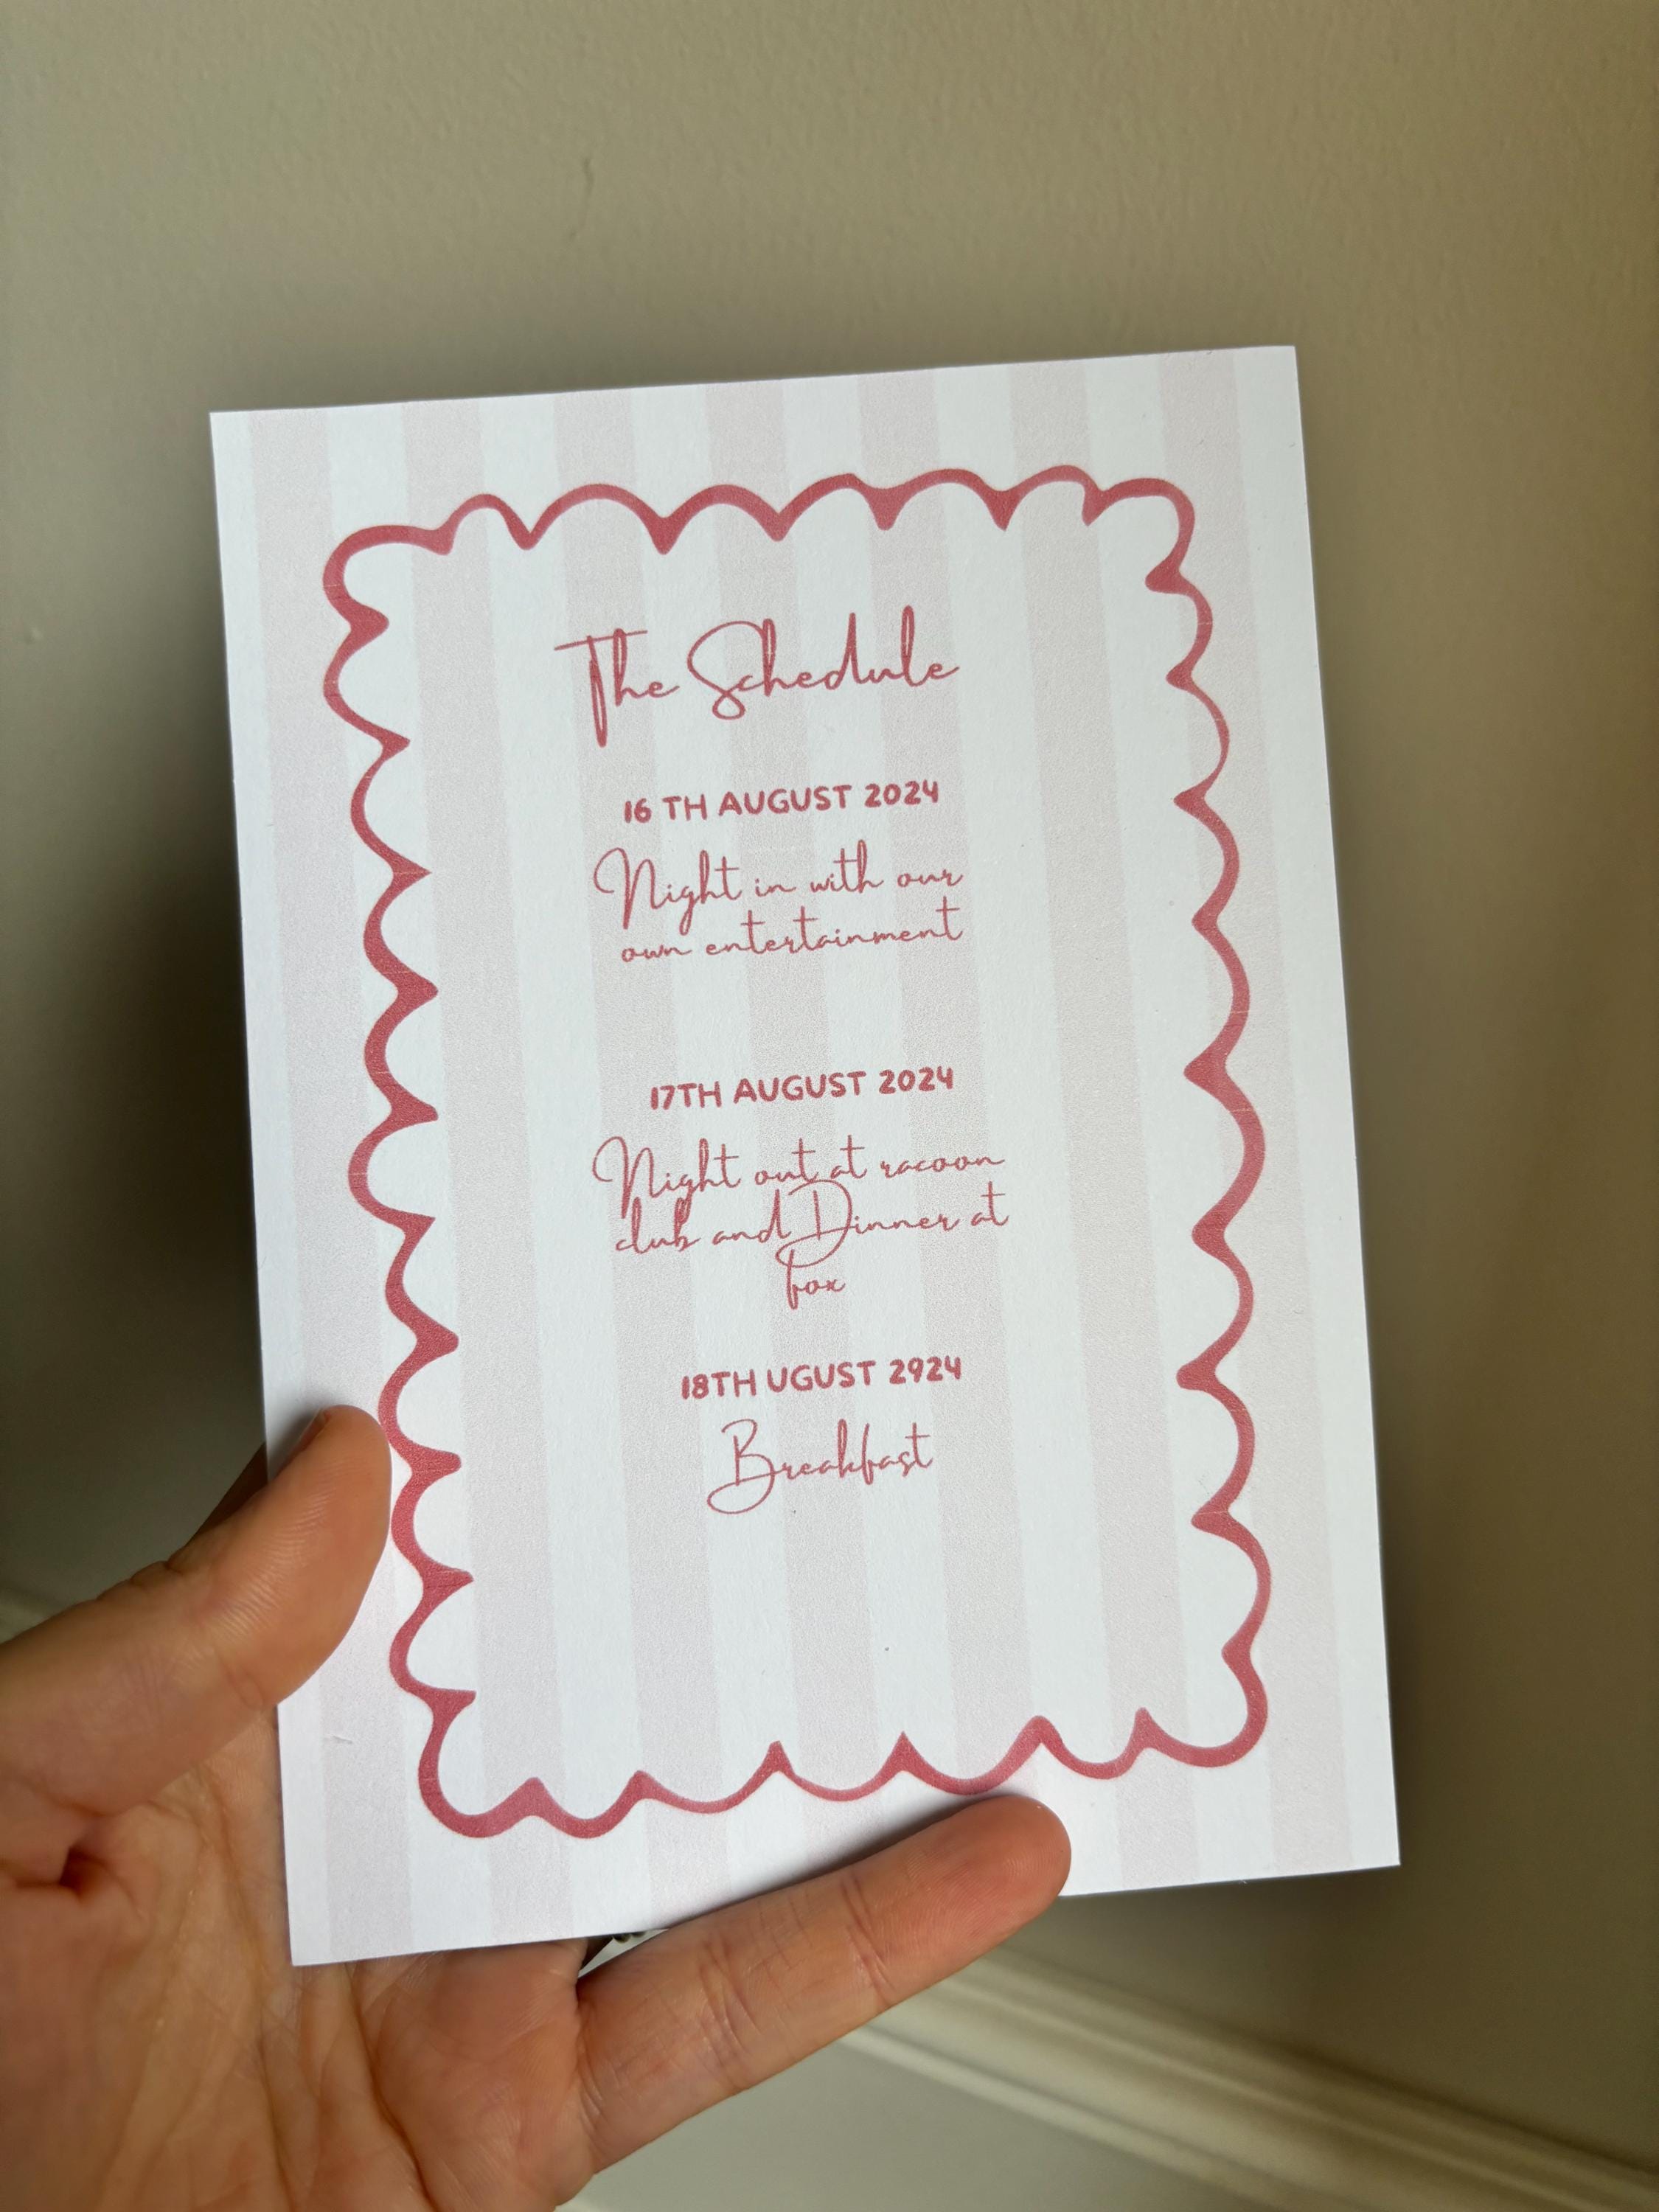 The Schedule
16 TH AUGUST 2024
Night in with our
own entertainment
17TH AUGUST 2024
Night out at racoon
club and Dinner at
fox
18TH UGUST 2924
Breakfast